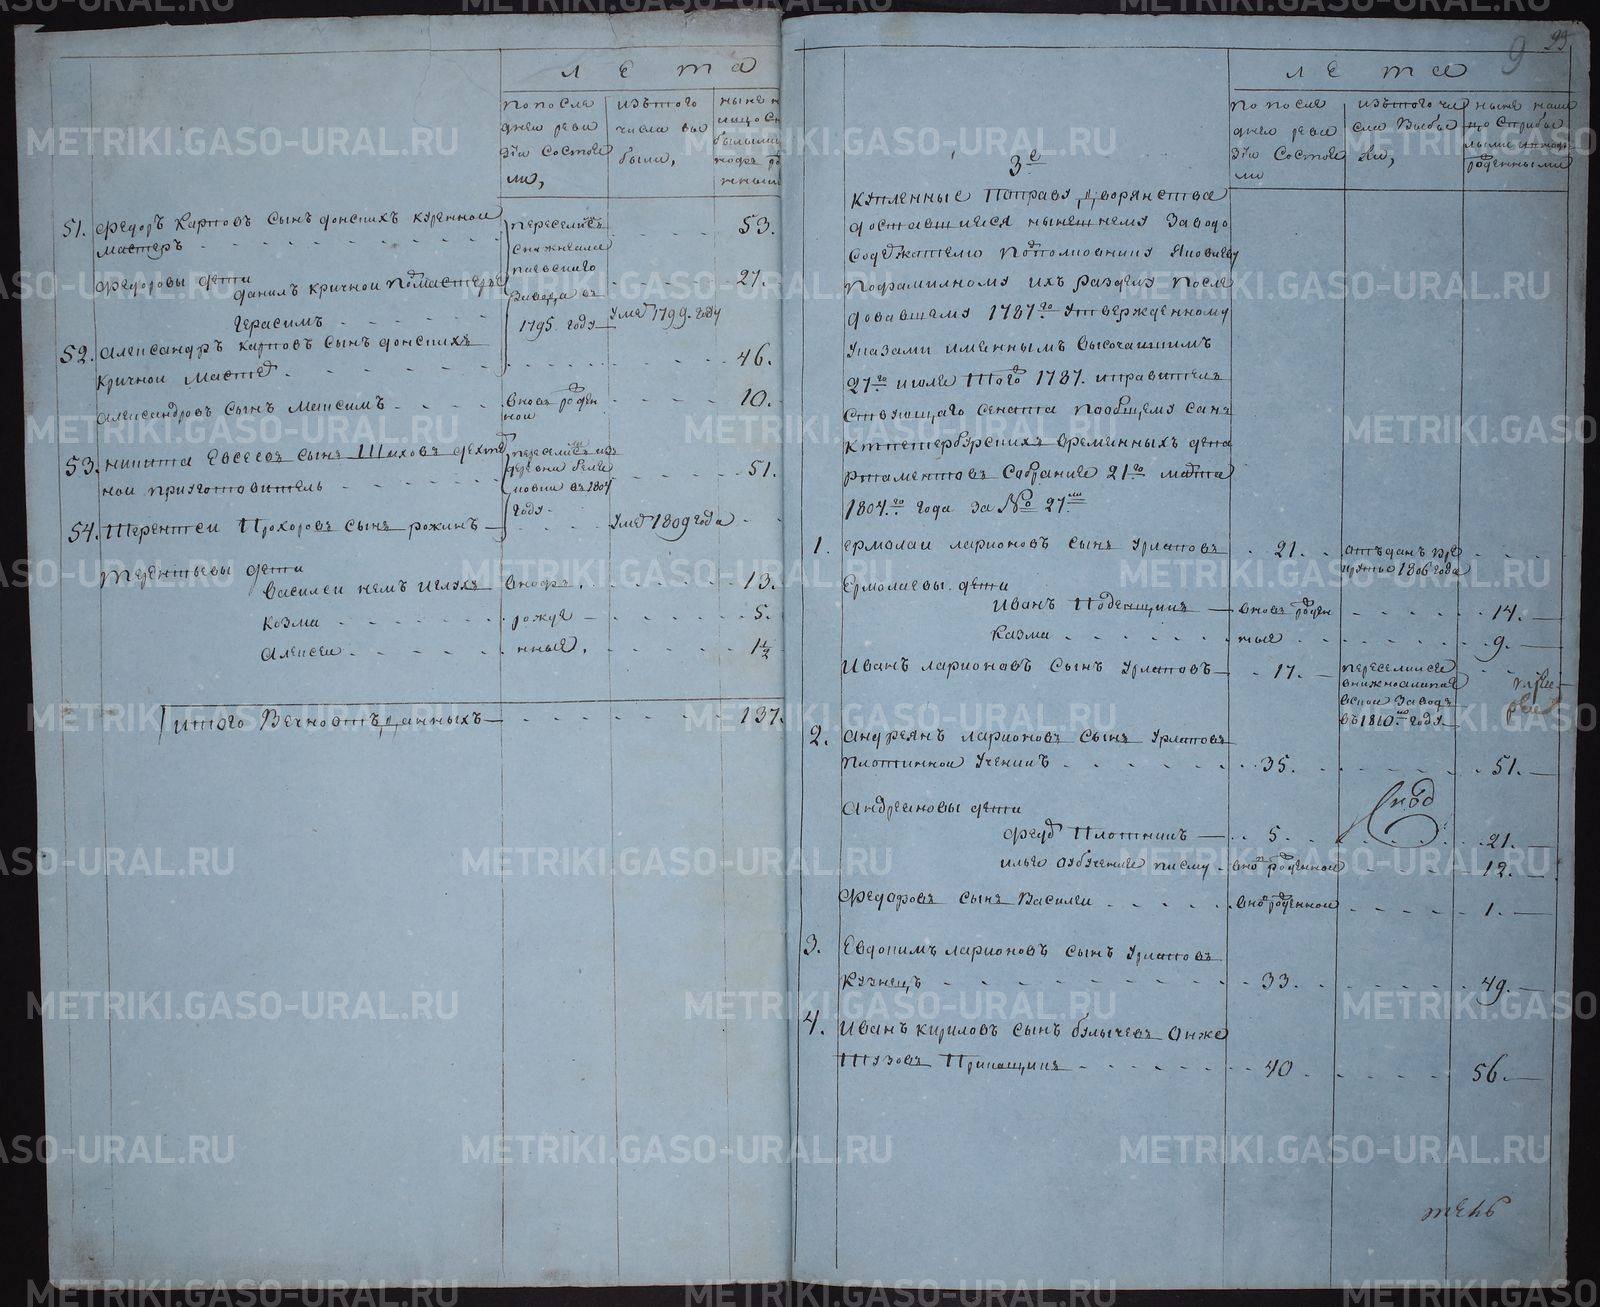 лета
попосле
днеи реви
зiи Состоя
ли,
изъ того
числа вы
были,
ныне н
лицо С
51. Федоръ Карповъ Сынъ донскихъ куреннои
мастеръ
переселился
снижнеала
паевского
завода въ
1795. году
53.
Федоровы дети
данилъ кричнои подмастерье
27.
герасимъ
умре 1799. году
52. Александръ карповъ Сынъ донскихъ
кричнои мастер
46.
Александровъ Сынъ Максимъ
вновь рожден
нои
10.
53. никита Евсеевъ сынъ Шиховъ
нои приготовитель
въ 1804
году
51.
54. Терентеи Прохоровъ Сынъ рожинъ
умре 1809 года
Терентьевы дети
василеи немъ иглухъ
вновь
13.
козма
рожде
5.
Алексеи
нные,
1½
итого Вечноотъданныхъ
137.
9
лета
попосле
днеи реви
зiи Состоя
ли
изътого чи
сла Выбы
ли,
ныне нали
цо Сприбы
лыми иновь
рожденными
3е
купленные Поправу дворянства
доставшиеся нынешнему Заводо
Содержателю Подполковнику Яковлеву
Пофамилному ихъ разделу После
довавшему 1787го Утвержденному
указами имяннымъ высочаишимъ
27го июля Того 1787. иправитель
ствующаго Сената пообщему Санк
ктпетербурскихъ временныхъ депа
ртаментовъ Собранiе 21го марта
1804.го года за № 27мъ
1. Ермолаи ларионовъ Сынъ Урлаповъ
21.
отъданъ вре
круты 1806 года
Ермолаевы. дети
Иванъ Поденщикъ
вновь рожден
14.
Казма
ные
9.
Иванъ ларионовъ Сынъ Урлаповъ
17.
переселился
внижноалапае
вскои Заводъ
въ 1810.мъ году
2. Андреянъ ларионовъ Сынъ Урлаповъ
Плотиннои Ученикъ
35.
51.
Андреяновы дети
Федор Плотникъ
5.
21.
илья Обучение писму
вновь рожденнои
12.
Федоровъ сынъ Василеи
вновь рожденнои
1.
3. Евдокимъ ларионовъ Сынъ Урлаповъ
Кузнецъ
33.
49.
4. Иванъ кириловъ Сынъ булычевъ Онже
Шузовъ Прикащикъ
40
56.
METRIKI.GASO-URAL.RU